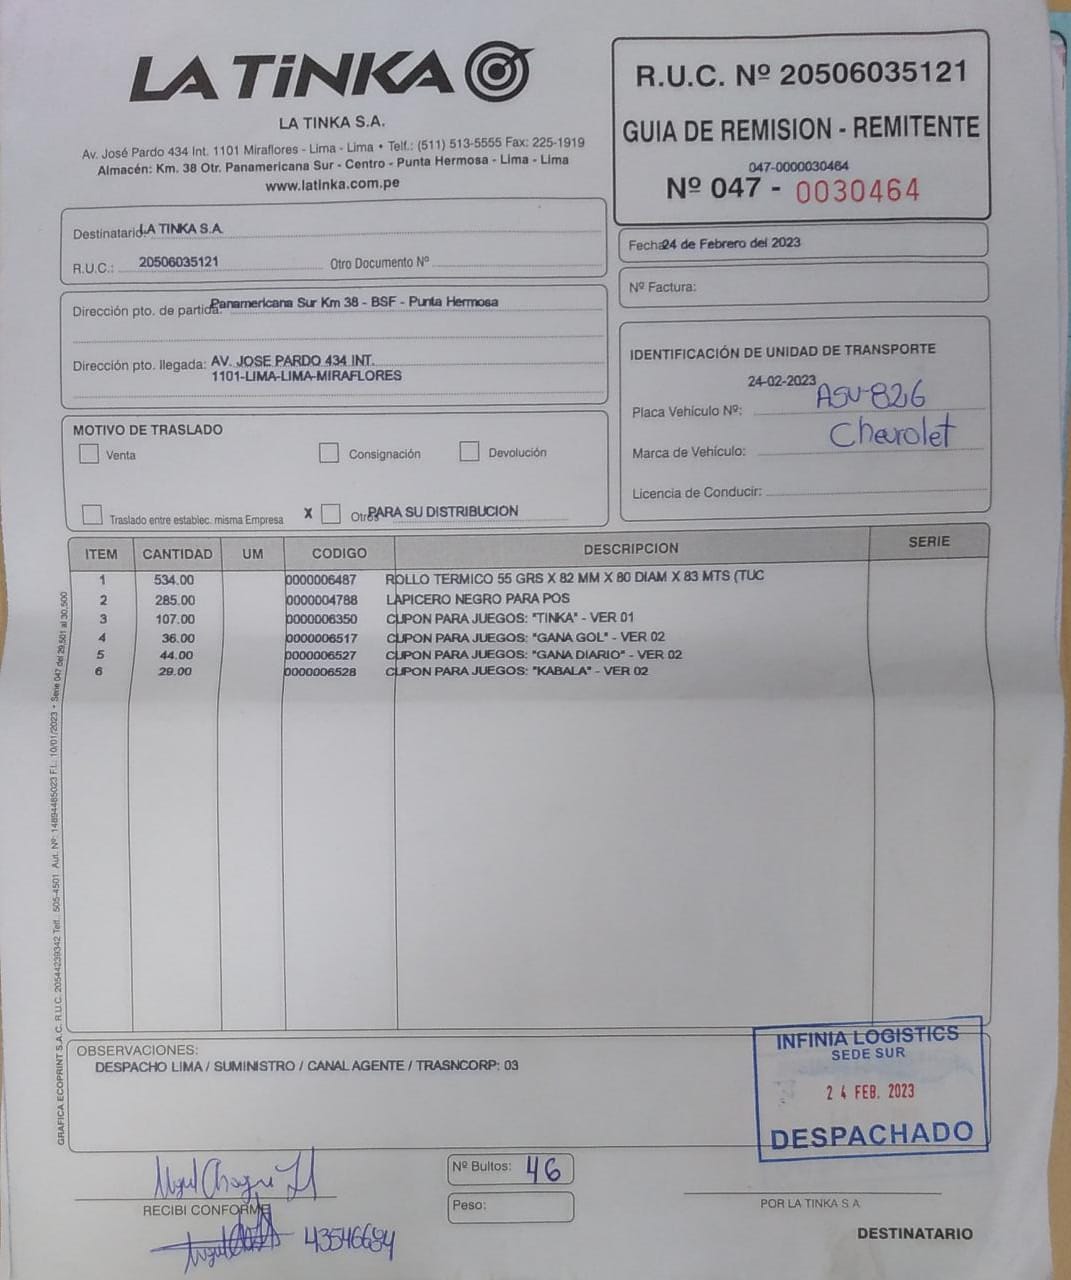 LA TiNKA
LA TINKA S.A.
Av. José Pardo 434 Int. 1101 Miraflores - Lima - Lima • Telf.: (511) 513-5555 Fax: 225-1919
Almacén: Km. 38 Otr. Panamericana Sur - Centro - Punta Hermosa - Lima - Lima
www.latinka.com.pe
R.U.C. Nº 20506035121
GUIA DE REMISION - REMITENTE
047-0000030464
Nº 047 - 0030464
Destinatario: LA TINKA S.A.
R.U.C.: 20506035121 Otro Documento Nº
Fecha 24 de Febrero del 2023
Nº Factura:
Dirección pto. de partida: Panamericana Sur Km 38 - BSF - Punta Hermosa
Dirección pto. llegada: AV. JOSE PARDO 434 INT.
1101-LIMA-LIMA-MIRAFLORES
IDENTIFICACIÓN DE UNIDAD DE TRANSPORTE
24-02-2023
Placa Vehículo Nº: ASU-826
Marca de Vehículo: Chevrolet
Licencia de Conducir:
MOTIVO DE TRASLADO
Venta Consignación Devolución
Traslado entre establec. misma Empresa X Otros PARA SU DISTRIBUCION
ITEM CANTIDAD UM CODIGO DESCRIPCION SERIE
1 534.00 0000006487 ROLLO TERMICO 55 GRS X 82 MM X 80 DIAM X 83 MTS (TUC
2 285.00 0000004788 LAPICERO NEGRO PARA POS
3 107.00 0000006350 CUPON PARA JUEGOS: "TINKA" - VER 01
4 36.00 0000006517 CUPON PARA JUEGOS: "GANA GOL" - VER 02
5 44.00 0000006527 CUPON PARA JUEGOS: "GANA DIARIO" - VER 02
6 29.00 0000006528 CUPON PARA JUEGOS: "KABALA" - VER 02
GRAFICA ECOPRINT S.A.C. R.U.C. 20544239342 Telf.: 505-4501 Aut. Nº: 14894485023 F.I.: 10/01/2023 • Serie 047 del 29,501 al 30,500
OBSERVACIONES:
DESPACHO LIMA / SUMINISTRO / CANAL AGENTE / TRASNCORP: 03
INFINIA LOGISTICS
SEDE SUR
24 FEB. 2023
DESPACHADO
Nº Bultos: 46
Peso:
RECIBI CONFORME
43546694
POR LA TINKA S.A.
DESTINATARIO